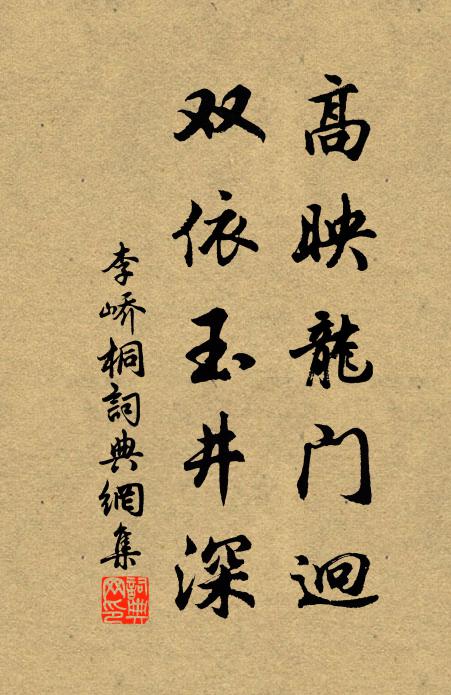 高映龍门迥
双依玉井深
李峤桐詞典網集
詞典网印